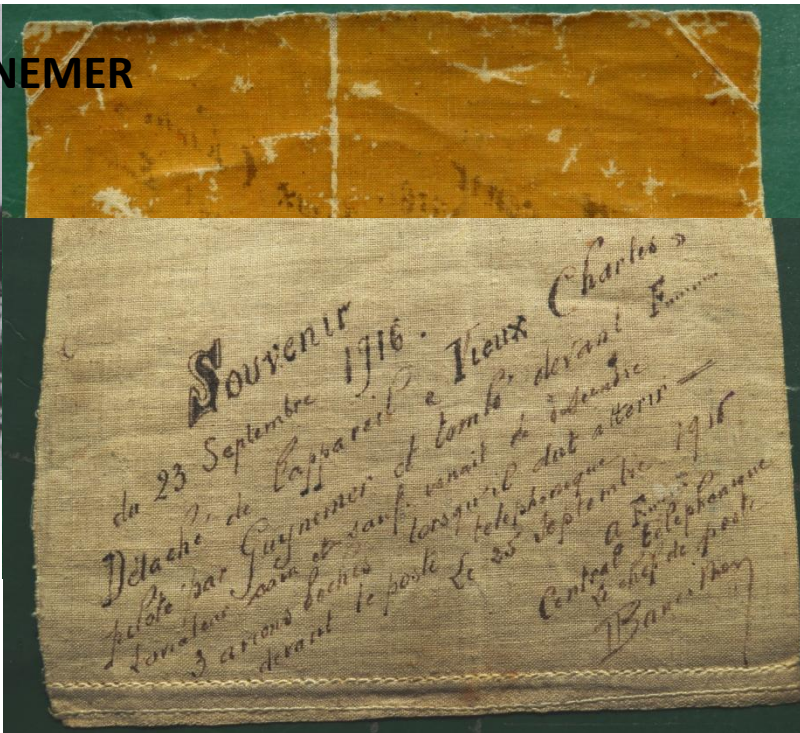 NEMER
Souvenir
du 23 Septembre 1916.
Détaché de l'appareil « Vieux Charles »
piloté par Guynemer et tombé devant F......
L'aviateur sain et sauf venait de déscendre
3 avions boches lorsqu'il dut atterir —
devant le poste téléphonique
Le 25 Septembre 1916
A
Central téléphonique
Le chef de poste